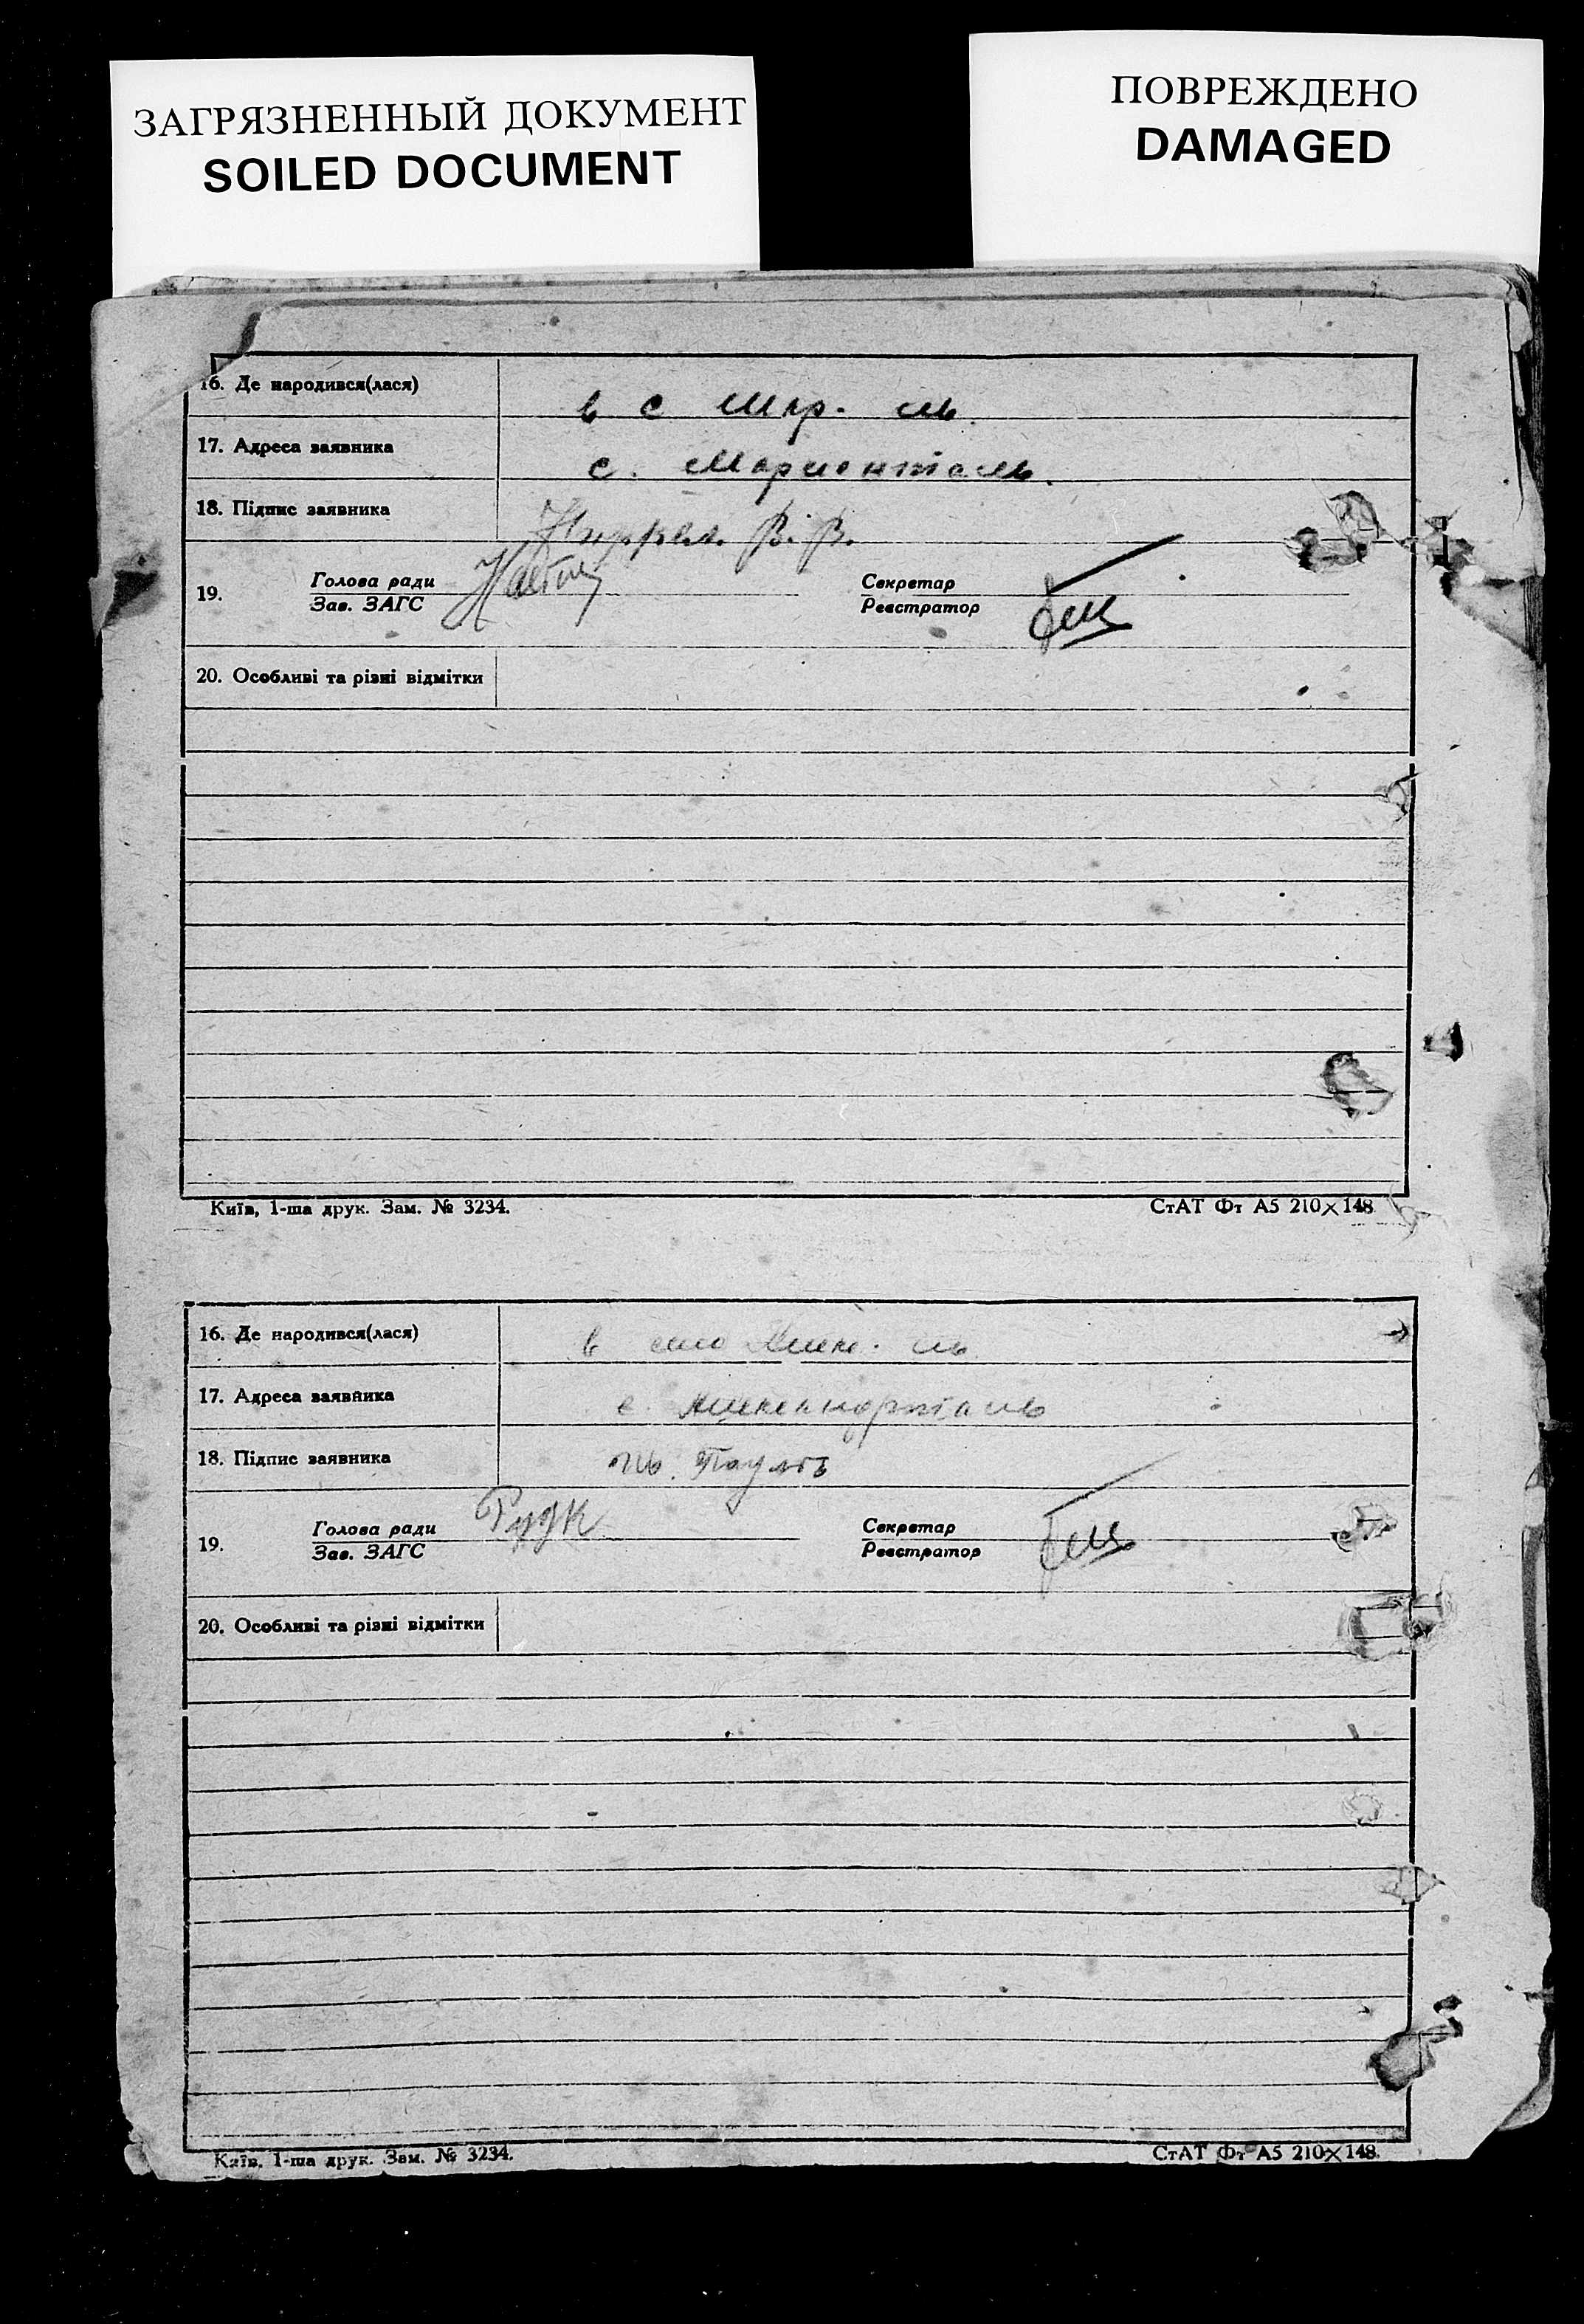 ЗАГРЯЗНЕННЫЙ ДОКУМЕНТ
SOILED DOCUMENT
ПОВРЕЖДЕНО
DAMAGED
16. Де народився(лася) в с Мар. ль.
17. Адреса заявника с. Мариенталь.
18. Підпис заявника В. В.
19. Голова ради Секретар
Зав. ЗАГС Реєстратор
20. Особливі та різні відмітки
Київ, 1-ша друк. Зам. № 3234. СтАТ Фт А5 210×148
16. Де народився(лася) в Алекс. ль.
17. Адреса заявника с. Александрталь
18. Підпис заявника
19. Голова ради Секретар
Зав. ЗАГС Реєстратор
20. Особливі та різні відмітки
Київ, 1-ша друк. Зам. № 3234. СтАТ Фт А5 210×148.